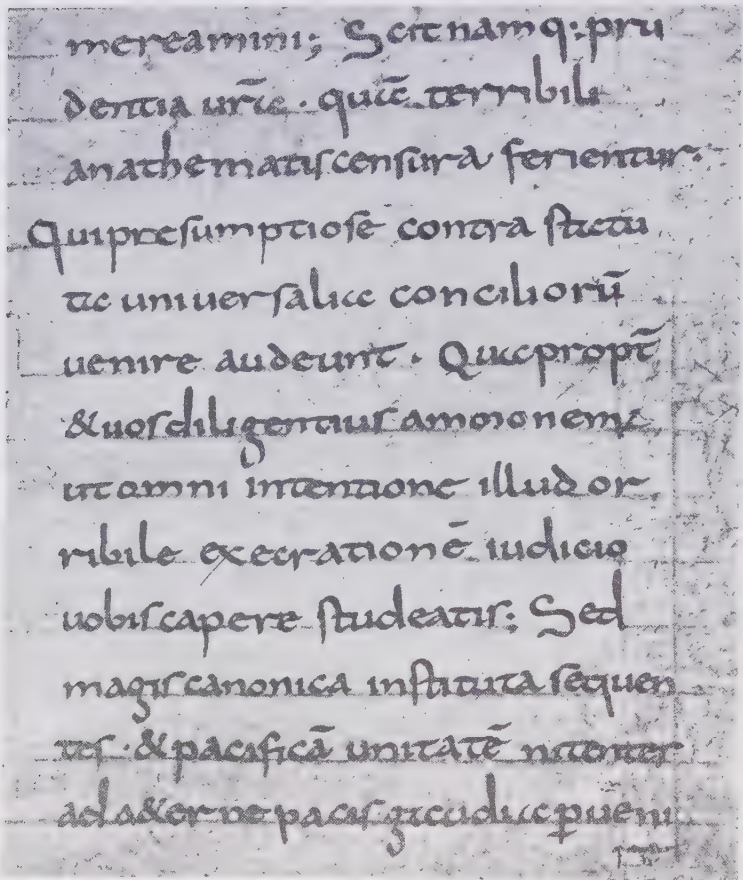 mereamini; Scit namq; pru
dentia ur̄a · qua̅ terribili
anathematis censura ferientur.
Qui presumptiose contra statu
ta uniuersaliu conciliorū
uenire audeunt · Quapropt̄
& uos diligentius ammonem
ut omni intentione illud or
ribile execrationē iudicio
uobis capere studeatis; Sed
magis canonica instituta sequen
tes · & pacificā unitatē nitenter
ad a&erne pacis gaudia p̱ueni